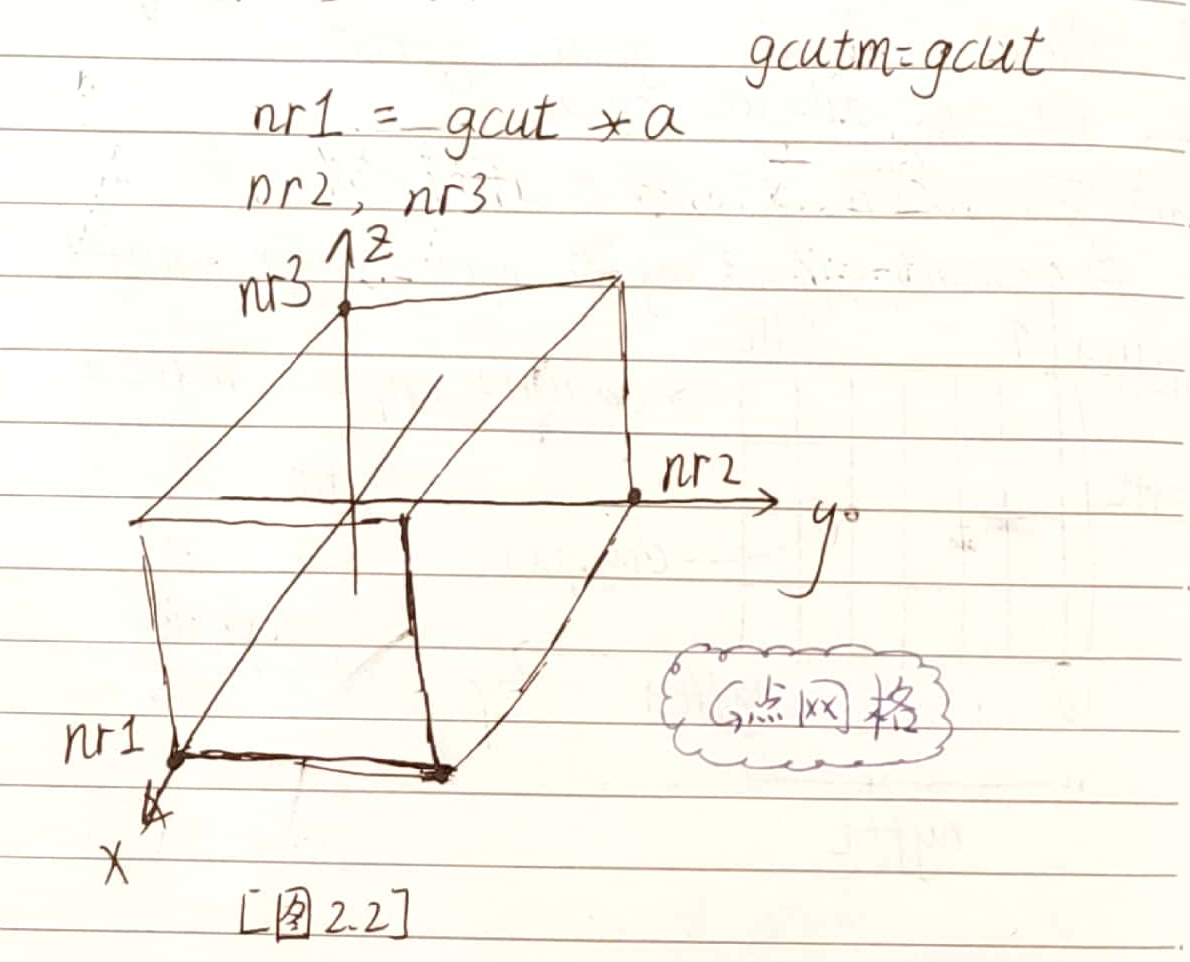 gcutm=gcut
nr1 = gcut * a
nr2, nr3
z
nr3
nr2
y
G点网格
nr1
x
[图2.2]